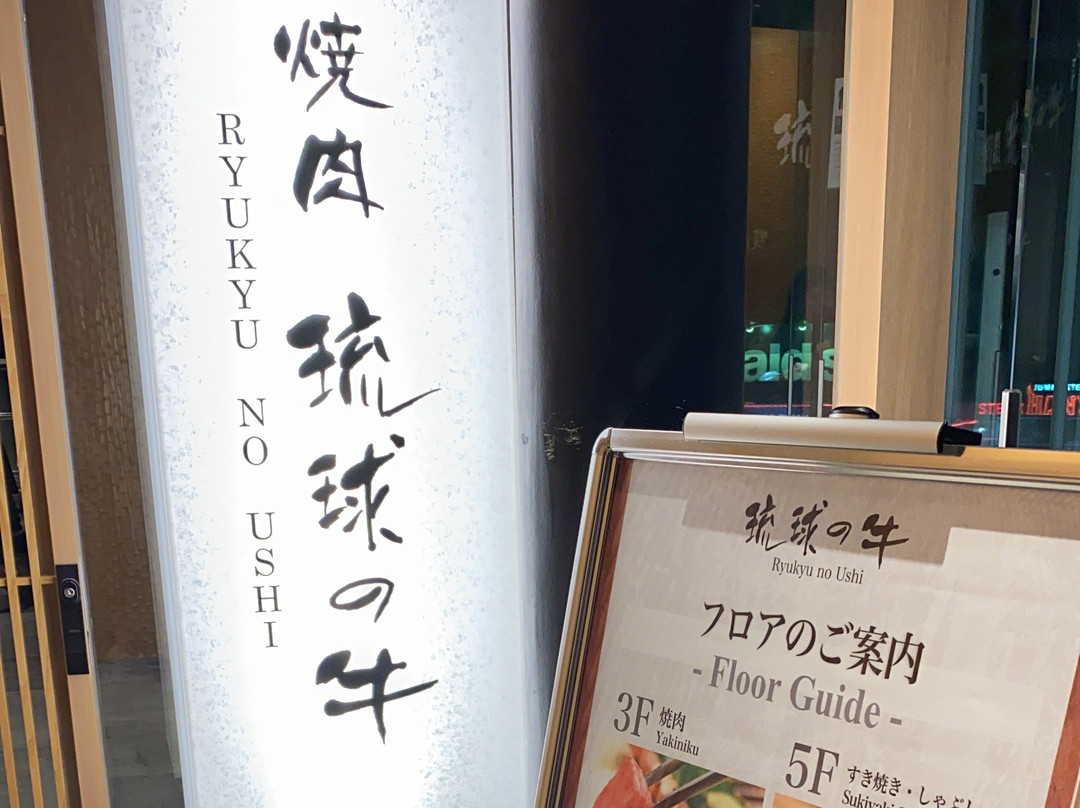 焼肉 琉球の牛
RYUKYU NO USHI
琉球の牛
Ryukyu no Ushi
フロアのご案内
- Floor Guide -
3F 焼肉
Yakiniku
5F すき焼き・しゃぶ
Sukiyaki
琉